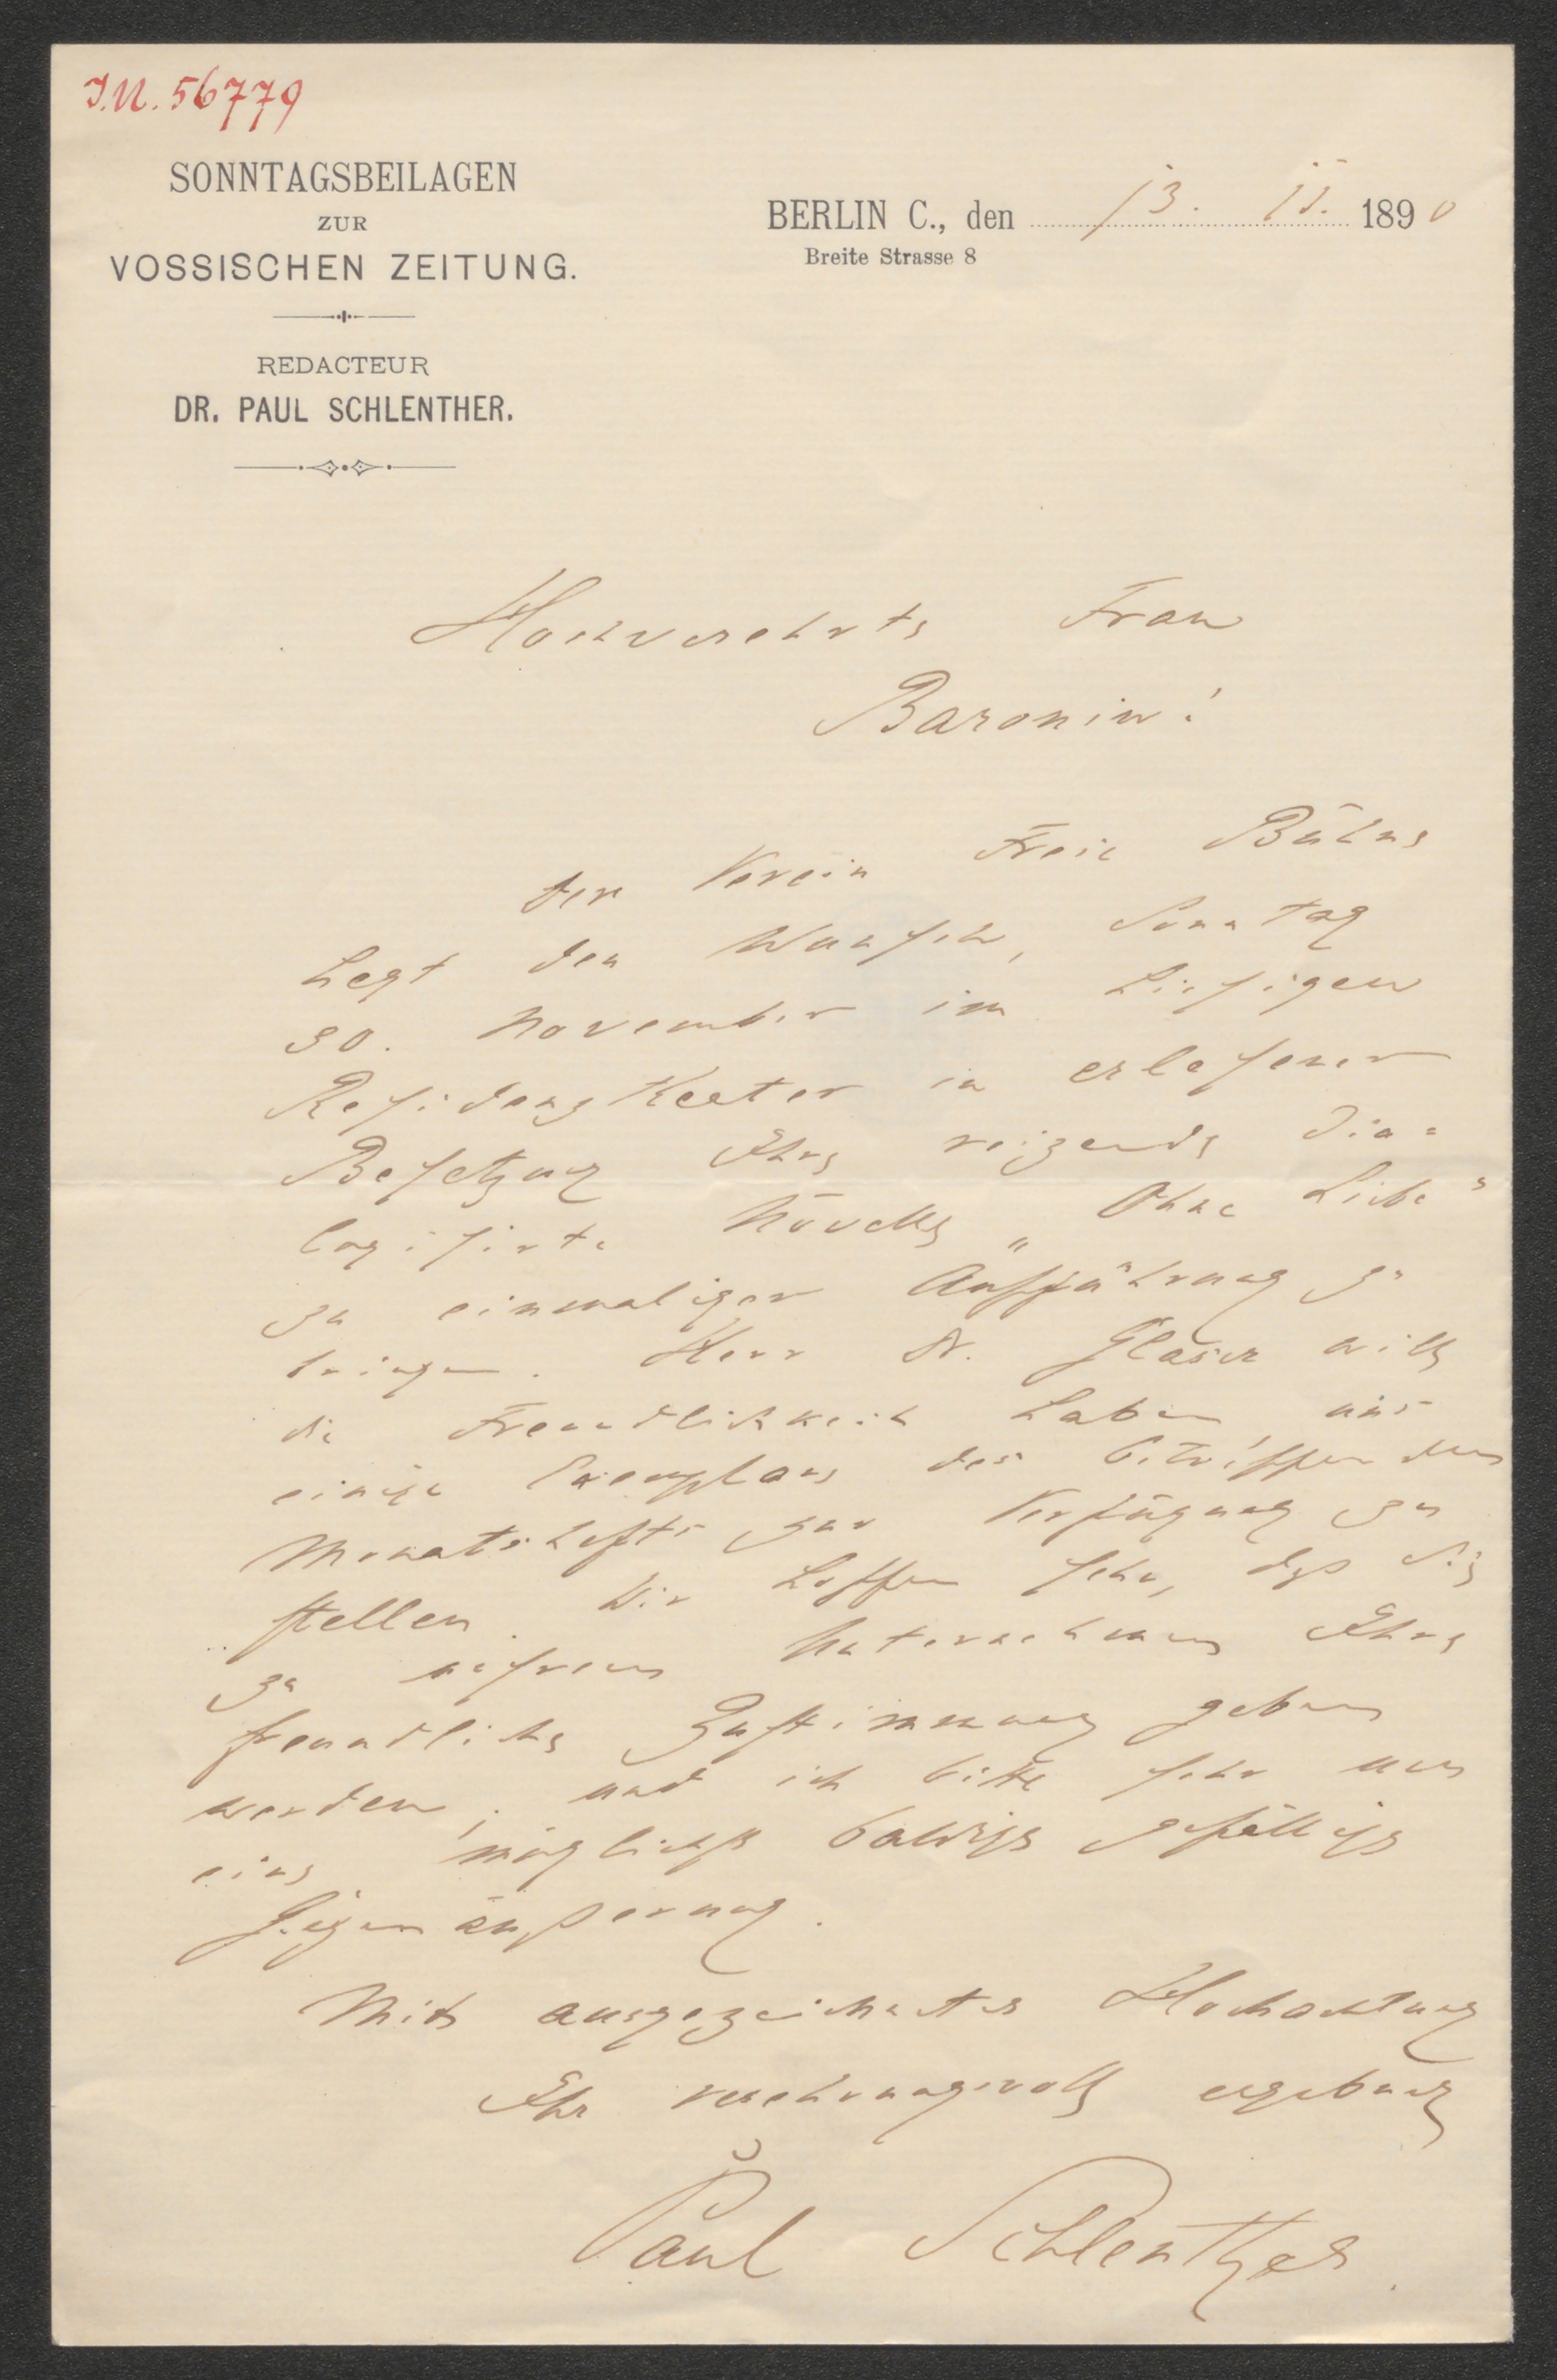 J.N. 56779
SONNTAGSBEILAGEN
ZUR
VOSSISCHEN ZEITUNG.
REDACTEUR
DR. PAUL SCHLENTHER.
BERLIN C., den 13. 11. 1890
Breite Strasse 8
Hochverehrte Frau
Baronin!
Der Verein Freie Bühne
hegt den Wunsch, Sonntag
30. November im hiesigen
Residenztheater in erlesener
Besetzung Ihre reizende dia=
logisirte Novelle „Ohne Liebe“
zu einmaliger Aufführung zu
bringen. Herr Dr. Glaser will
die Freundlichkeit haben uns
einige Exemplare des betreffenden
Monatshefts zur Verfügung zu
stellen. Wir hoffen sehr, daß Sie
zu unserem Unternehmen Ihre
freundliche Zustimmung geben
werden, und ich bitte sehr um
eine möglichst baldige gefällige
Gegenäußerung.
Mit ausgezeichneter Hochachtung
Ihr verehrungsvoll ergebener
Paul Schlenther.